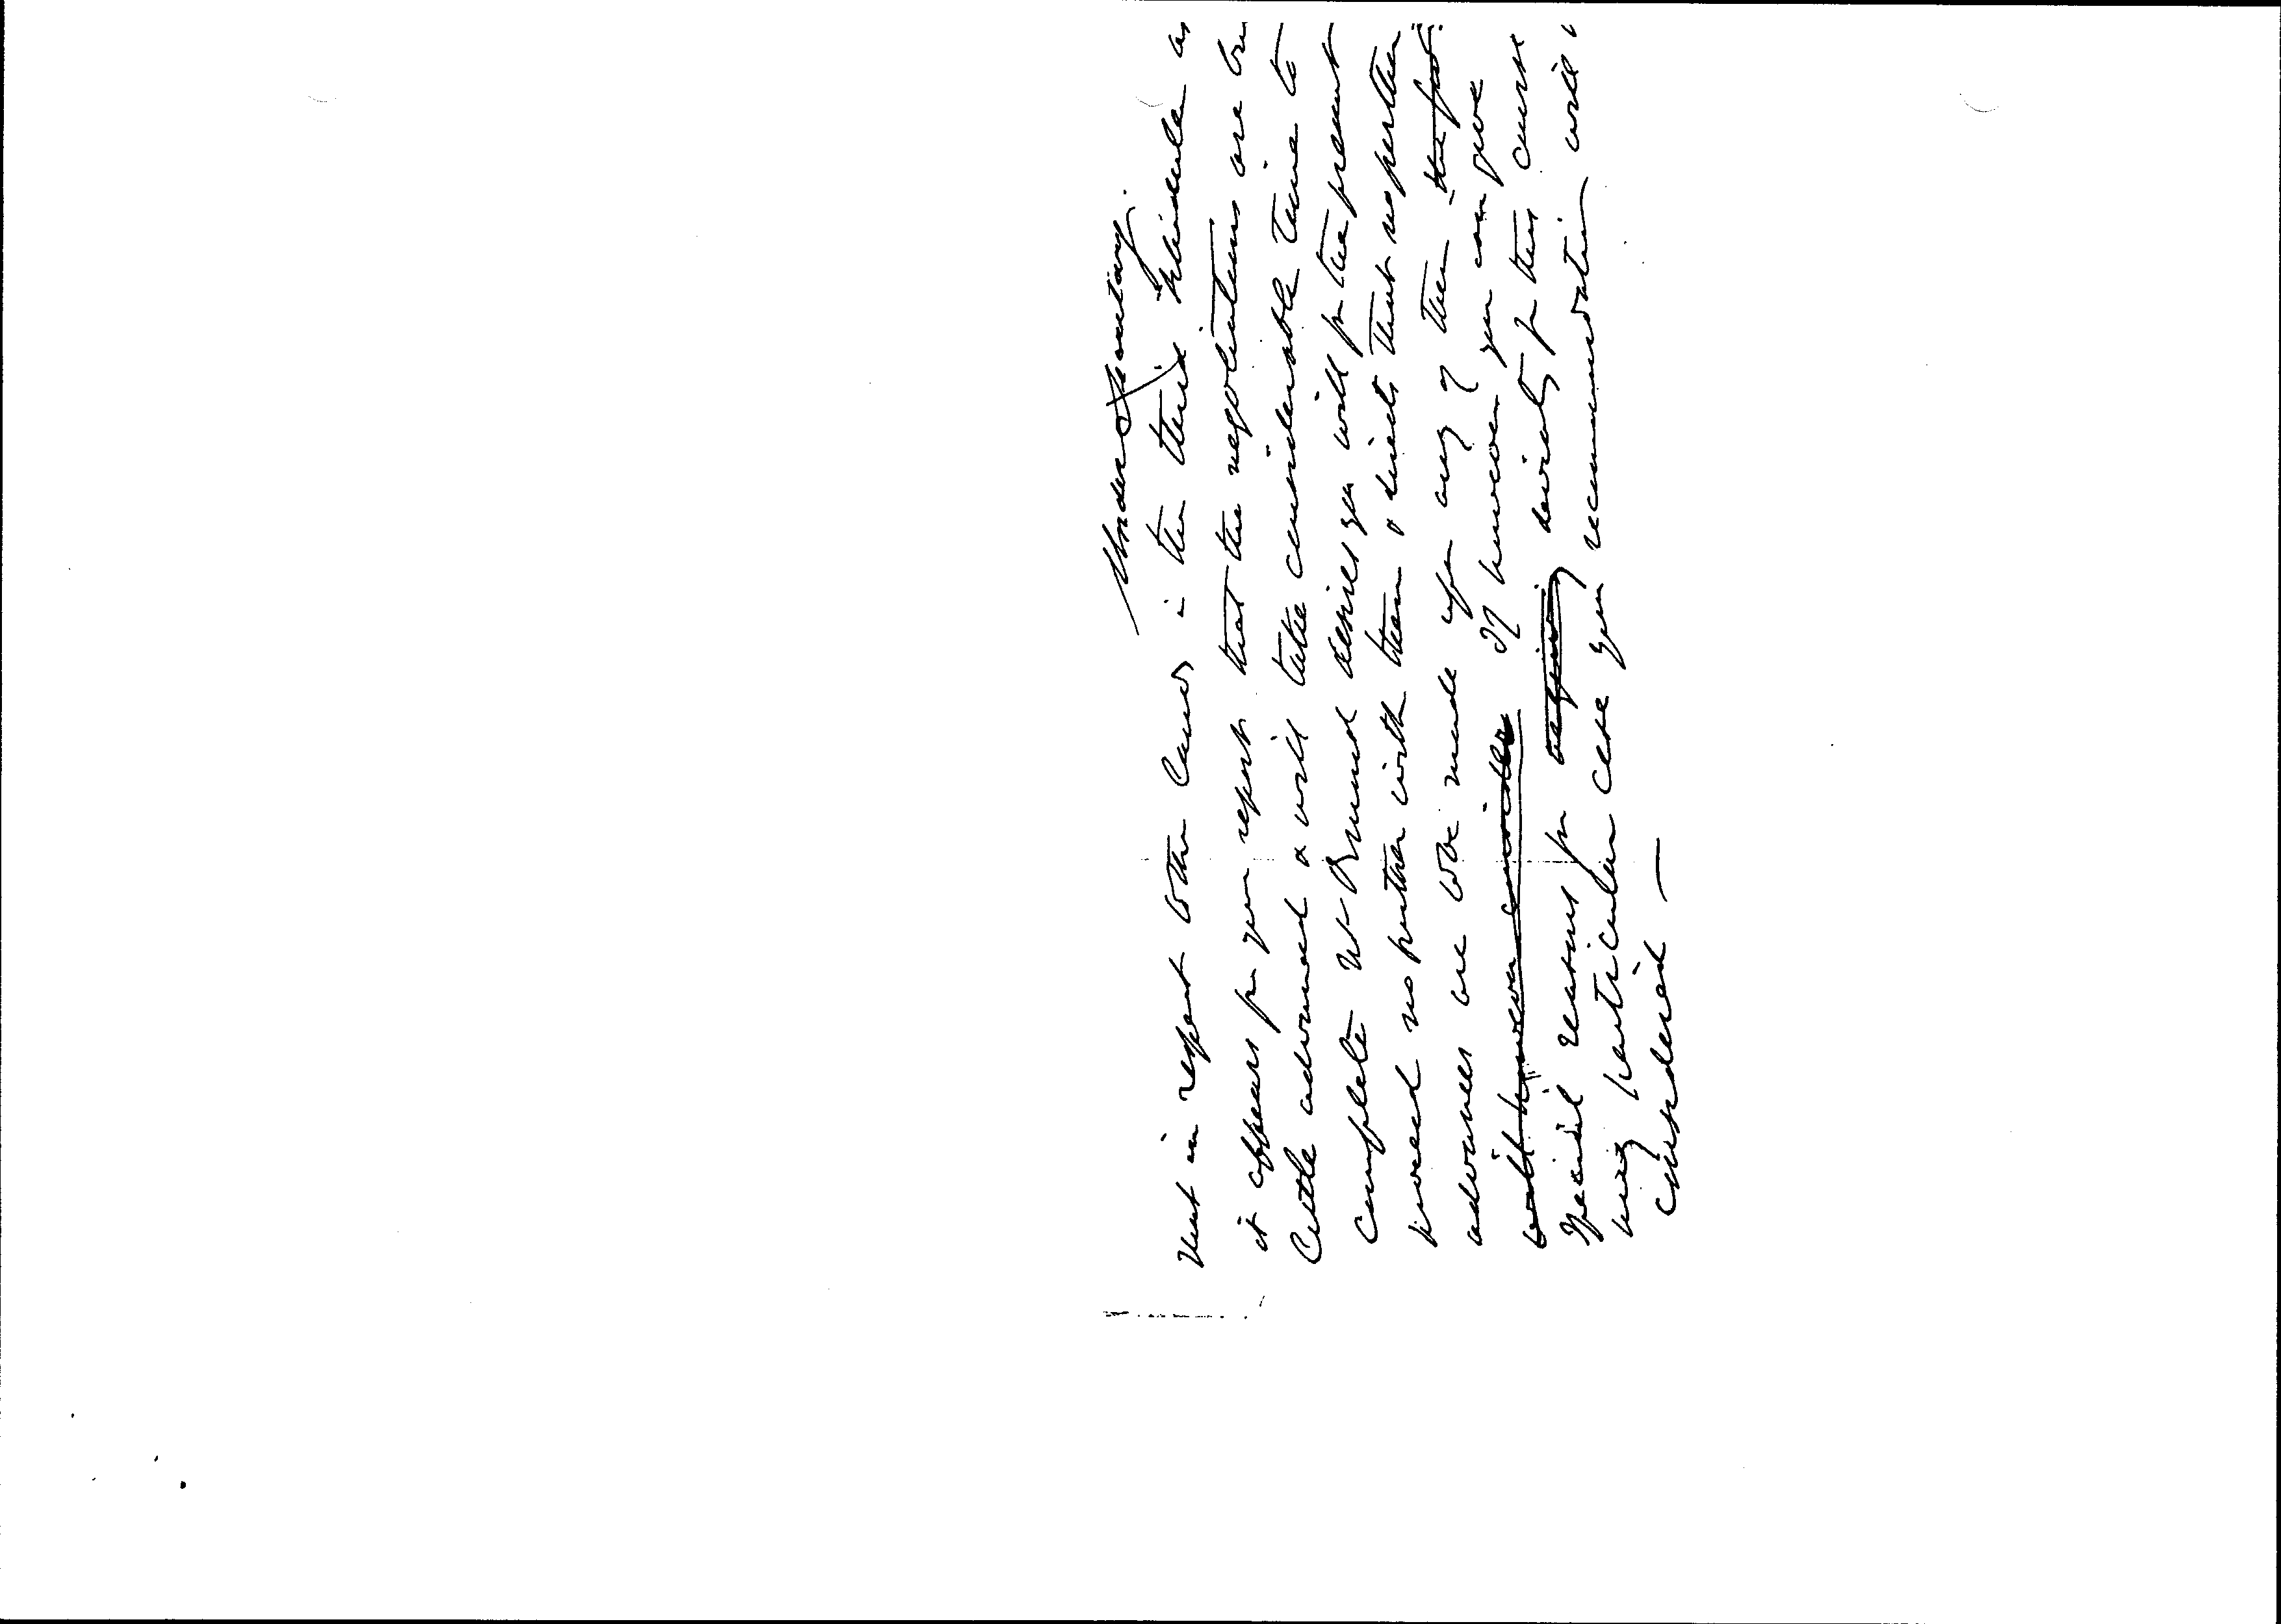 Under Secretary.
that in respect to the lands in the third schedule as
it appears from your report that the negotiations are but
little advanced & will take considerable time to
complete Mr Brunel desires you will for the present
proceed no further with them & directs that no further
advances are to be made upon any of them - the fur
will however consider If however you can give
special reasons for valuing deviating from this course
in any particular case your recommendation will be
considered —